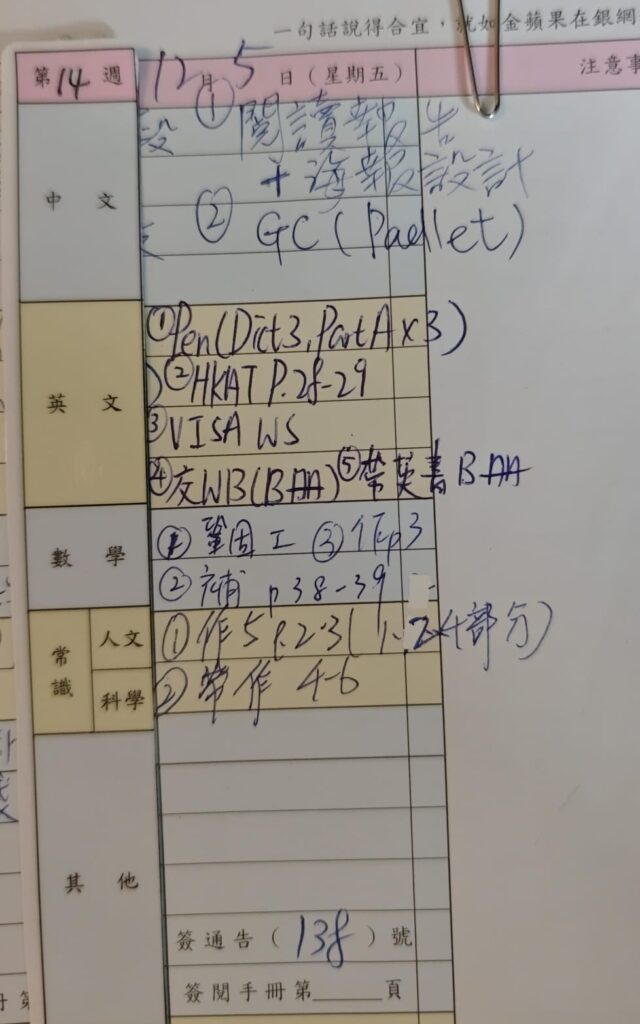 一句話說得合宜，就如金蘋果在銀網
第14週 12月5日（星期五） 注意事
中文
① 閱讀報告
+海報設計
② GC (Padlet)
英文
① Pen(Dict3, Part A x 3)
② HKAT P.28-29
③ VISA WS
④ 交WB(BAA) ⑤ 帶英書BAA
數學
① 鞏固工 ③ 作p3
② 補 p38-39
常識 人文 科學
① 作5 P.2-3( 1-2 4部分)
② 帶作 4-6
其他
簽通告（138）號
簽閱手冊第＿＿＿頁